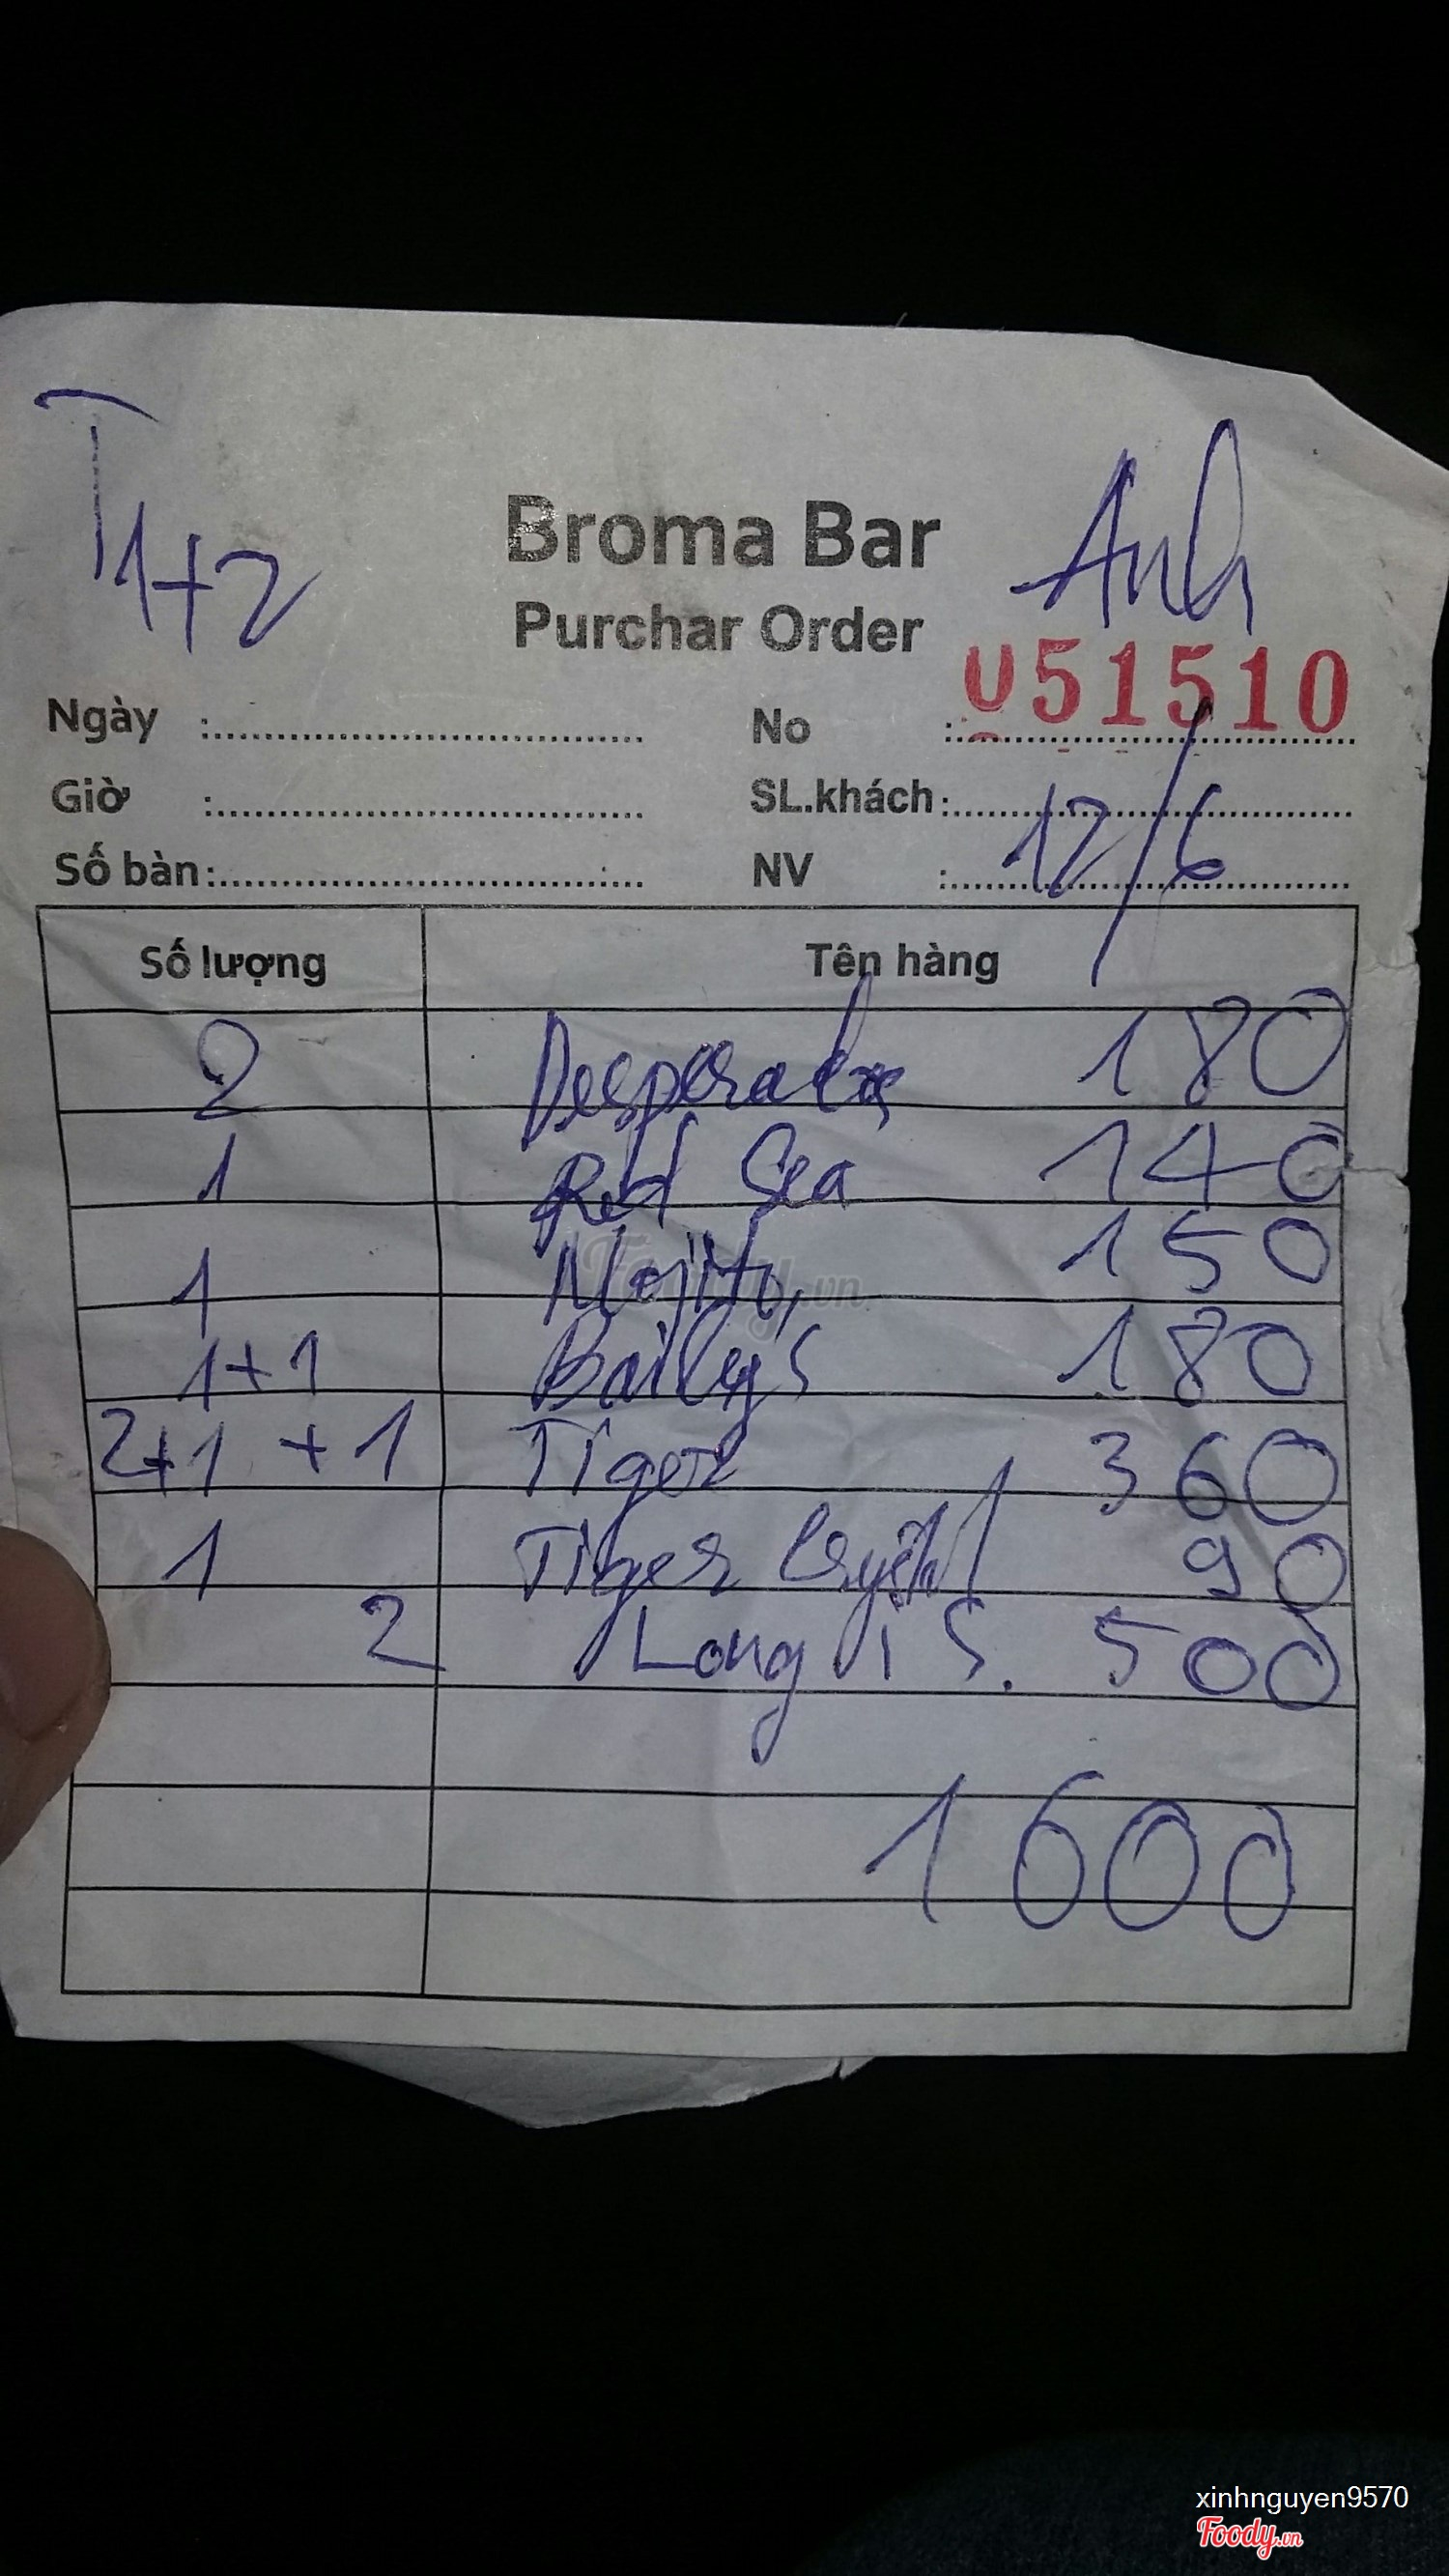 T1+2
Anh
Broma Bar
Purchar Order
Ngày : No : 051510
Giờ : SL.khách :
Số bàn : NV : 12/6
Số lượng Tên hàng
2 Desperados 180
1 Red Sea 140
1 Mojito 150
1+1 Baily's 180
2+1 +1 Tiger 360
1 Tiger Crystal 90
2 Long i S. 500
1600
Foody.vn
xinhnguyen9570
Foody.vn